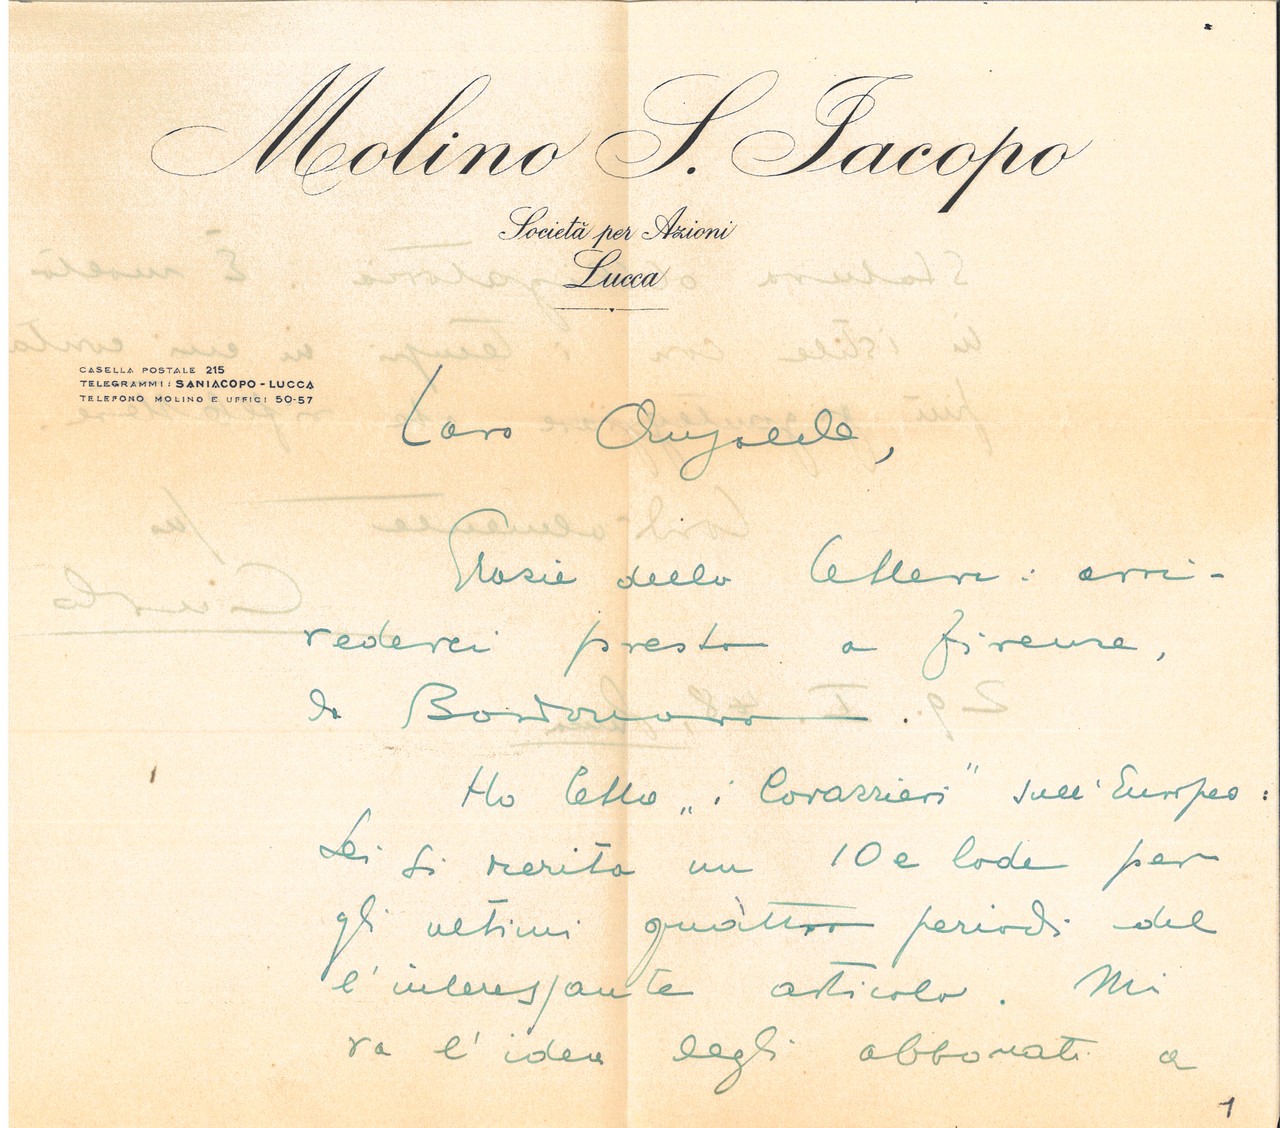 Molino S. Jacopo
Società per Azioni
Lucca
CASELLA POSTALE 215
TELEGRAMMI: SANIACOPO - LUCCA
TELEFONO MOLINO E UFFICI 50-57
Caro
Grazie della lettera: arri-
vederci presto a Firenze,
da Bordonaro.
Ho letto „i Corazzieri" sull'Europeo:
Lei si merita un 10 e lode per
gli ultimi quattro periodi del
l'interessante articolo. Mi
va l'idea degli abbonati a
1